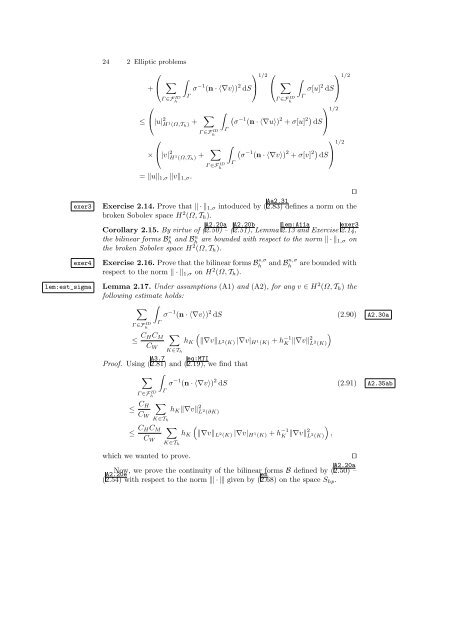 24 2 Elliptic problems
+ ( ∑_{Γ∈F_h^{ID}} ∫_Γ σ^{-1}(n · ⟨∇v⟩)^2 dS )^{1/2} ( ∑_{Γ∈F_h^{ID}} ∫_Γ σ[u]^2 dS )^{1/2}
≤ ( |u|^2_{H^1(Ω,T_h)} + ∑_{Γ∈F_h^{ID}} ∫_Γ (σ^{-1}(n · ⟨∇u⟩)^2 + σ[u]^2) dS )^{1/2}
× ( |v|^2_{H^1(Ω,T_h)} + ∑_{Γ∈F_h^{ID}} ∫_Γ (σ^{-1}(n · ⟨∇v⟩)^2 + σ[v]^2) dS )^{1/2}
= ‖u‖_{1,σ} ‖v‖_{1,σ}.
□
As2.31
exer3 Exercise 2.14. Prove that ‖ · ‖_{1,σ} intoduced by (2.83) defines a norm on the
broken Sobolev space H^2(Ω, T_h).
A2.20a A2.20b lem:A11a exer3
Corollary 2.15. By virtue of (2.50) – (2.51), Lemma 2.13 and Exercise 2.14,
the bilinear forms B_h^s and B_h^n are bounded with respect to the norm ‖ · ‖_{1,σ} on
the broken Sobolev space H^2(Ω, T_h).
exer4 Exercise 2.16. Prove that the bilinear forms B_h^{s,σ} and B_h^{n,σ} are bounded with
respect to the norm ‖ · ‖_{1,σ} on H^2(Ω, T_h).
lem:est_sigma Lemma 2.17. Under assumptions (A1) and (A2), for any v ∈ H^2(Ω, T_h) the
following estimate holds:
∑_{Γ∈F_h^{ID}} ∫_Γ σ^{-1}(n · ⟨∇v⟩)^2 dS (2.90) A2.30a
≤ C_H C_M / C_W ∑_{K∈T_h} h_K ( ‖∇v‖_{L^2(K)} |∇v|_{H^1(K)} + h_K^{-1}‖∇v‖^2_{L^2(K)} )
A3.7 eq:MTI
Proof. Using (2.81) and (2.19), we find that
∑_{Γ∈F_h^{ID}} ∫_Γ σ^{-1}(n · ⟨∇v⟩)^2 dS (2.91) A2.35ab
≤ C_H / C_W ∑_{K∈T_h} h_K ‖∇v‖^2_{L^2(∂K)}
≤ C_H C_M / C_W ∑_{K∈T_h} h_K ( ‖∇v‖_{L^2(K)} |∇v|_{H^1(K)} + h_K^{-1} ‖∇v‖^2_{L^2(K)} ),
which we wanted to prove. □
A2.20a
Now, we prove the continuity of the bilinear forms B defined by (2.50) –
A2.20e
(2.54) with respect to the norm ||| · ||| given by (2.68) on the space S_{hp}.